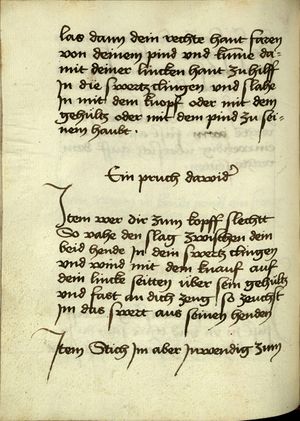 las dann dein rechte hant faren
von deinem pind und kume da-
mit deiner lincken hant zu hilff
In die swertz clingen und slahe
In mit dem knopf oder mit dem
gehultz oder mit dem pind zu sei-
nem haubt .
Ein pruch dawider
Item wer dir zum kopff slechtt
So vahe den slag zwischen dein
beid hende In dein swertz clingen
und wind mit dem knauf auf
dein lincke seitten uber sein gehultz
und fast an dich zeug so zeuchst
Im das swert aus seinen henden
Item Stich Im aber Inwendig zum